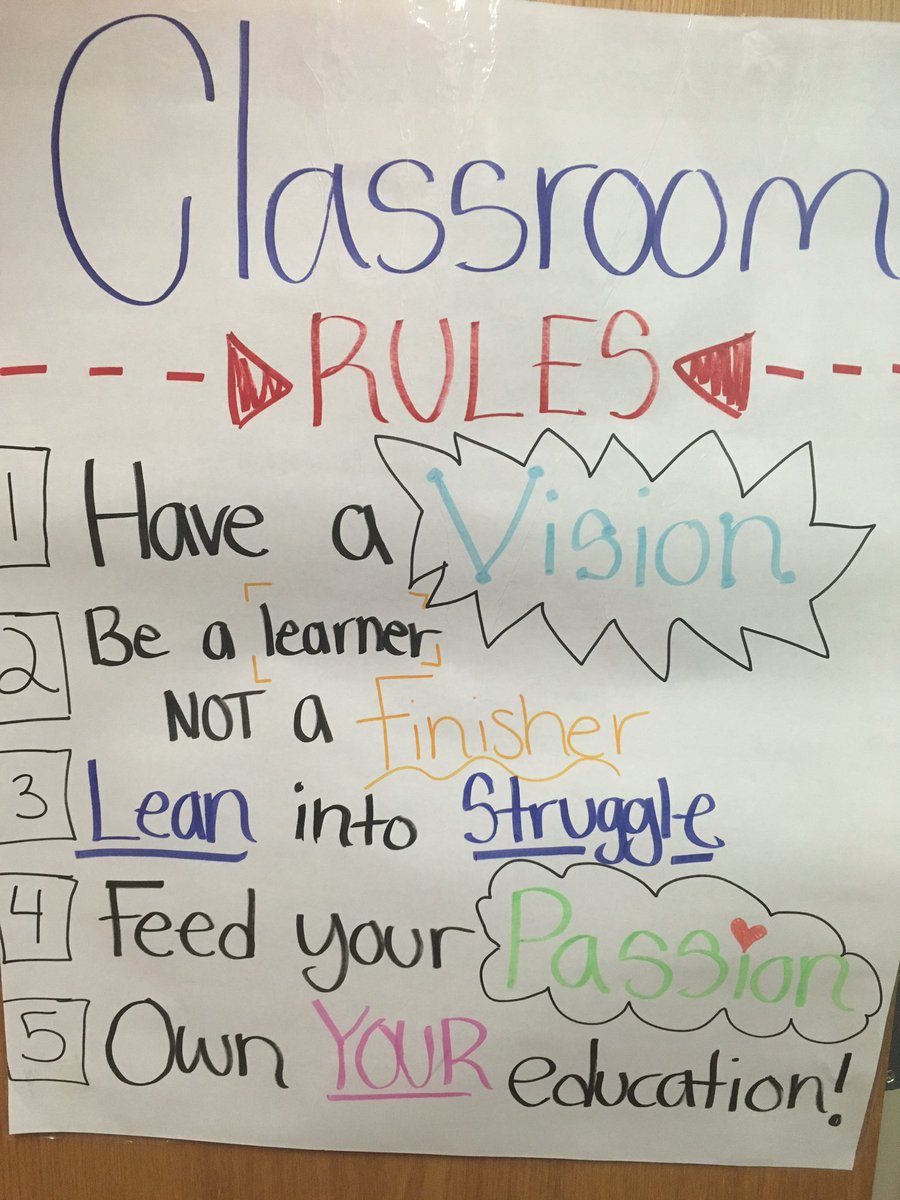 Classroom
RULES
1 Have a Vision
2 Be a learner
NOT a Finisher
3 Lean into Struggle
4 Feed your Passion
5 Own YOUR education!